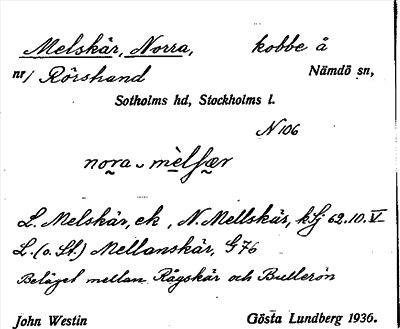 Melskär, Norra, kobbe å
nr/ Rörstrand Nämdö sn,
Sotholms hd, Stockholms l.
N 106
nora mèlʃær
L. Melskär, ek, N. Mellskär, kSj 62.10.V
L. (o. St.) Mellanskär, G 76
Beläget mellan Rågskär och Bullerön
John Westin Gösta Lundberg 1936.